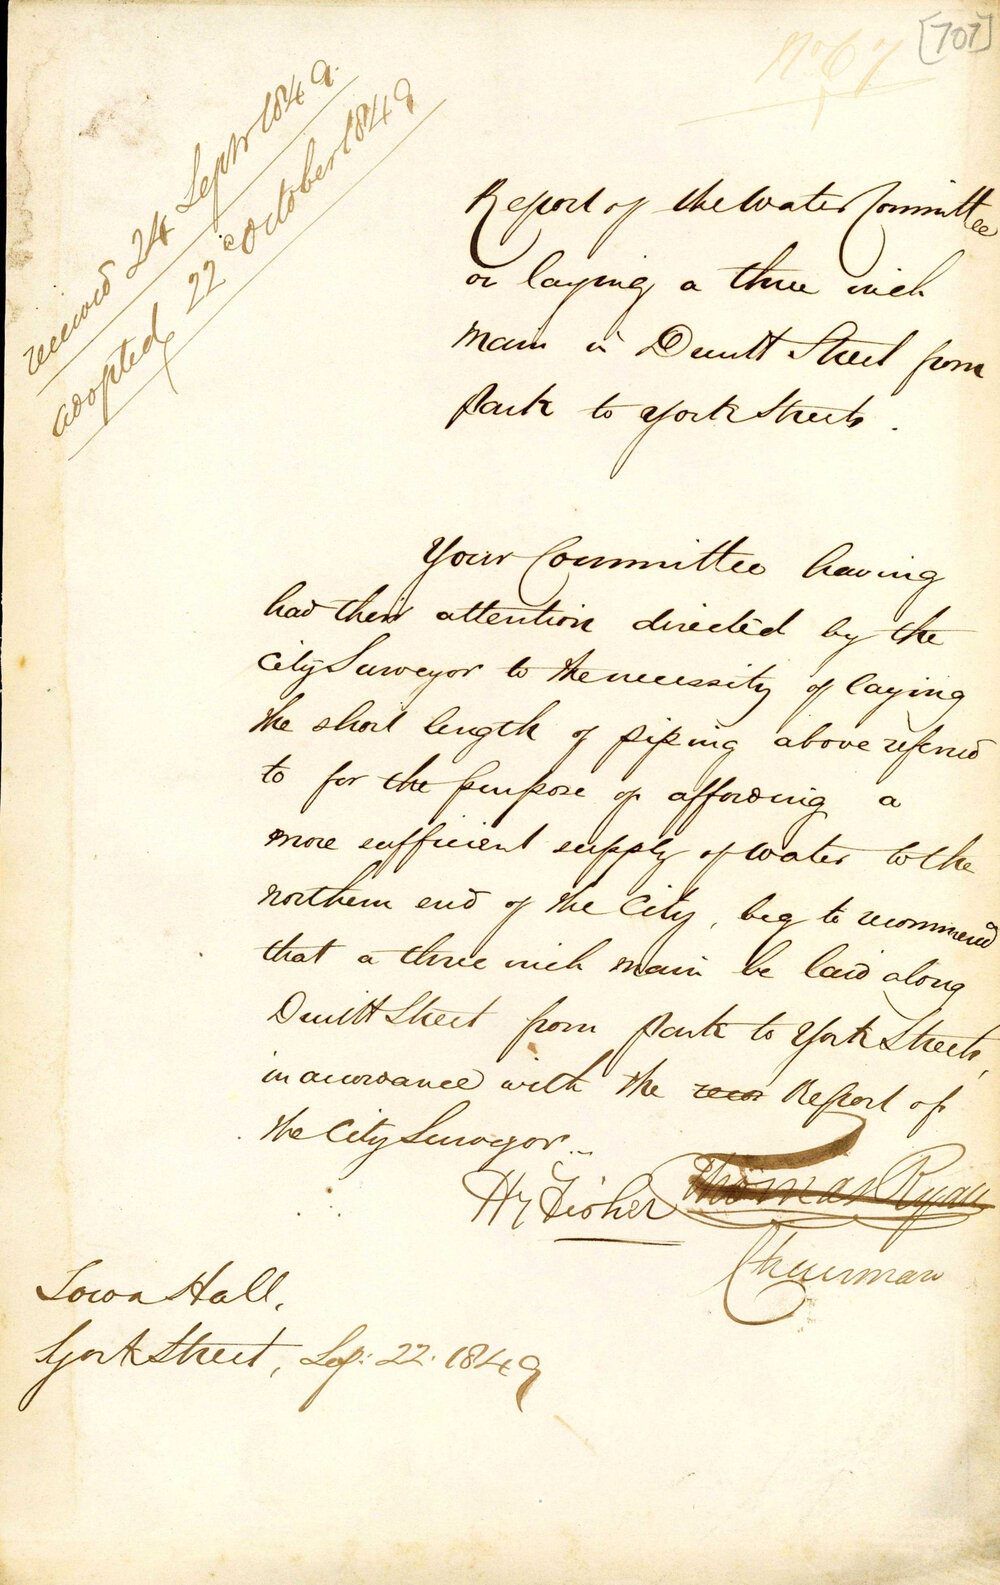 [707]
No 67
received 24 Septr 1849.
adopted 22 October 1849
Report of the Water Committee
on laying a three inch
Main in Druitt Street from
Park to York Streets.
Your Committee having
had their attention directed by the
City Surveyor to the necessity of laying
the short length of piping above referred
to for the purpose of affording a
more sufficient supply of Water to the
northern end of the City, beg to recommend
that a three inch main be laid along
Druitt Street from Park to York Streets,
in accordance with the Report of
the City Surveyor
Hy Fisher Thomas Ryan
Chairman
Town Hall,
York Street, Sep: 22. 1849